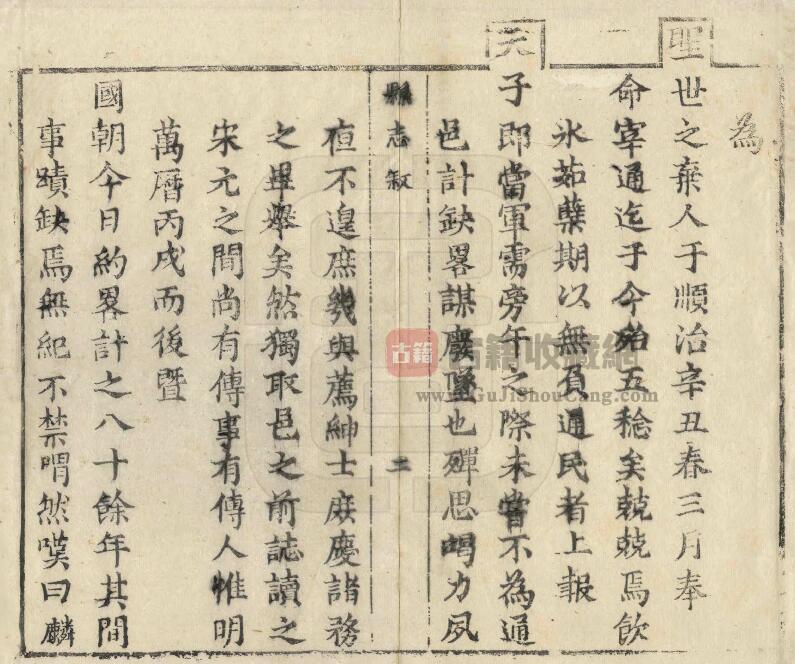 為
聖世之棄人于順治辛丑春三月奉
命宰通迄于今殆五稔矣兢兢焉飲
氷茹蘗期以無負通民者上報
天子即當軍需旁午之際未嘗不為通
邑計缺畧謀廢墜也殫思竭力夙
縣志敘
二
夜不遑庶幾與薦紳士庶慶諸務
之畢舉矣然獨取邑之前誌讀之
宋元之間尚有傳事有傳人惟明
萬曆丙戌而後暨
國朝今日約畧計之八十餘年其間
事蹟缺焉無紀不禁喟然嘆曰麟
古籍
古籍收藏網
www.GuJiShouCang.com